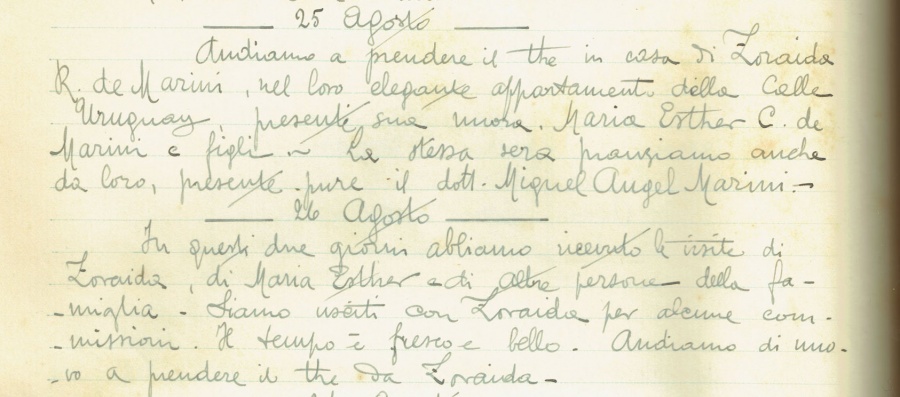 25 Agosto
Andiamo a prendere il the in casa di Zoraida
R. de Marini, nel loro elegante appartamento della Calle
Uruguay, presenti sua nuora. Maria Esther C. de
Marini e figli. ~ La stessa sera pranziamo anche
da loro, presente pure il dott. Miguel Angel Marini.-
26 Agosto
In questi due giorni abbiamo ricevuto le visite di
Zoraida, di Maria Esther e di altre persone della fa-
-miglia - Siamo usciti con Zoraida per alcune com-
-missioni. Il tempo è fresco e bello. Andiamo di nuo-
-vo a prendere il the da Zoraida-